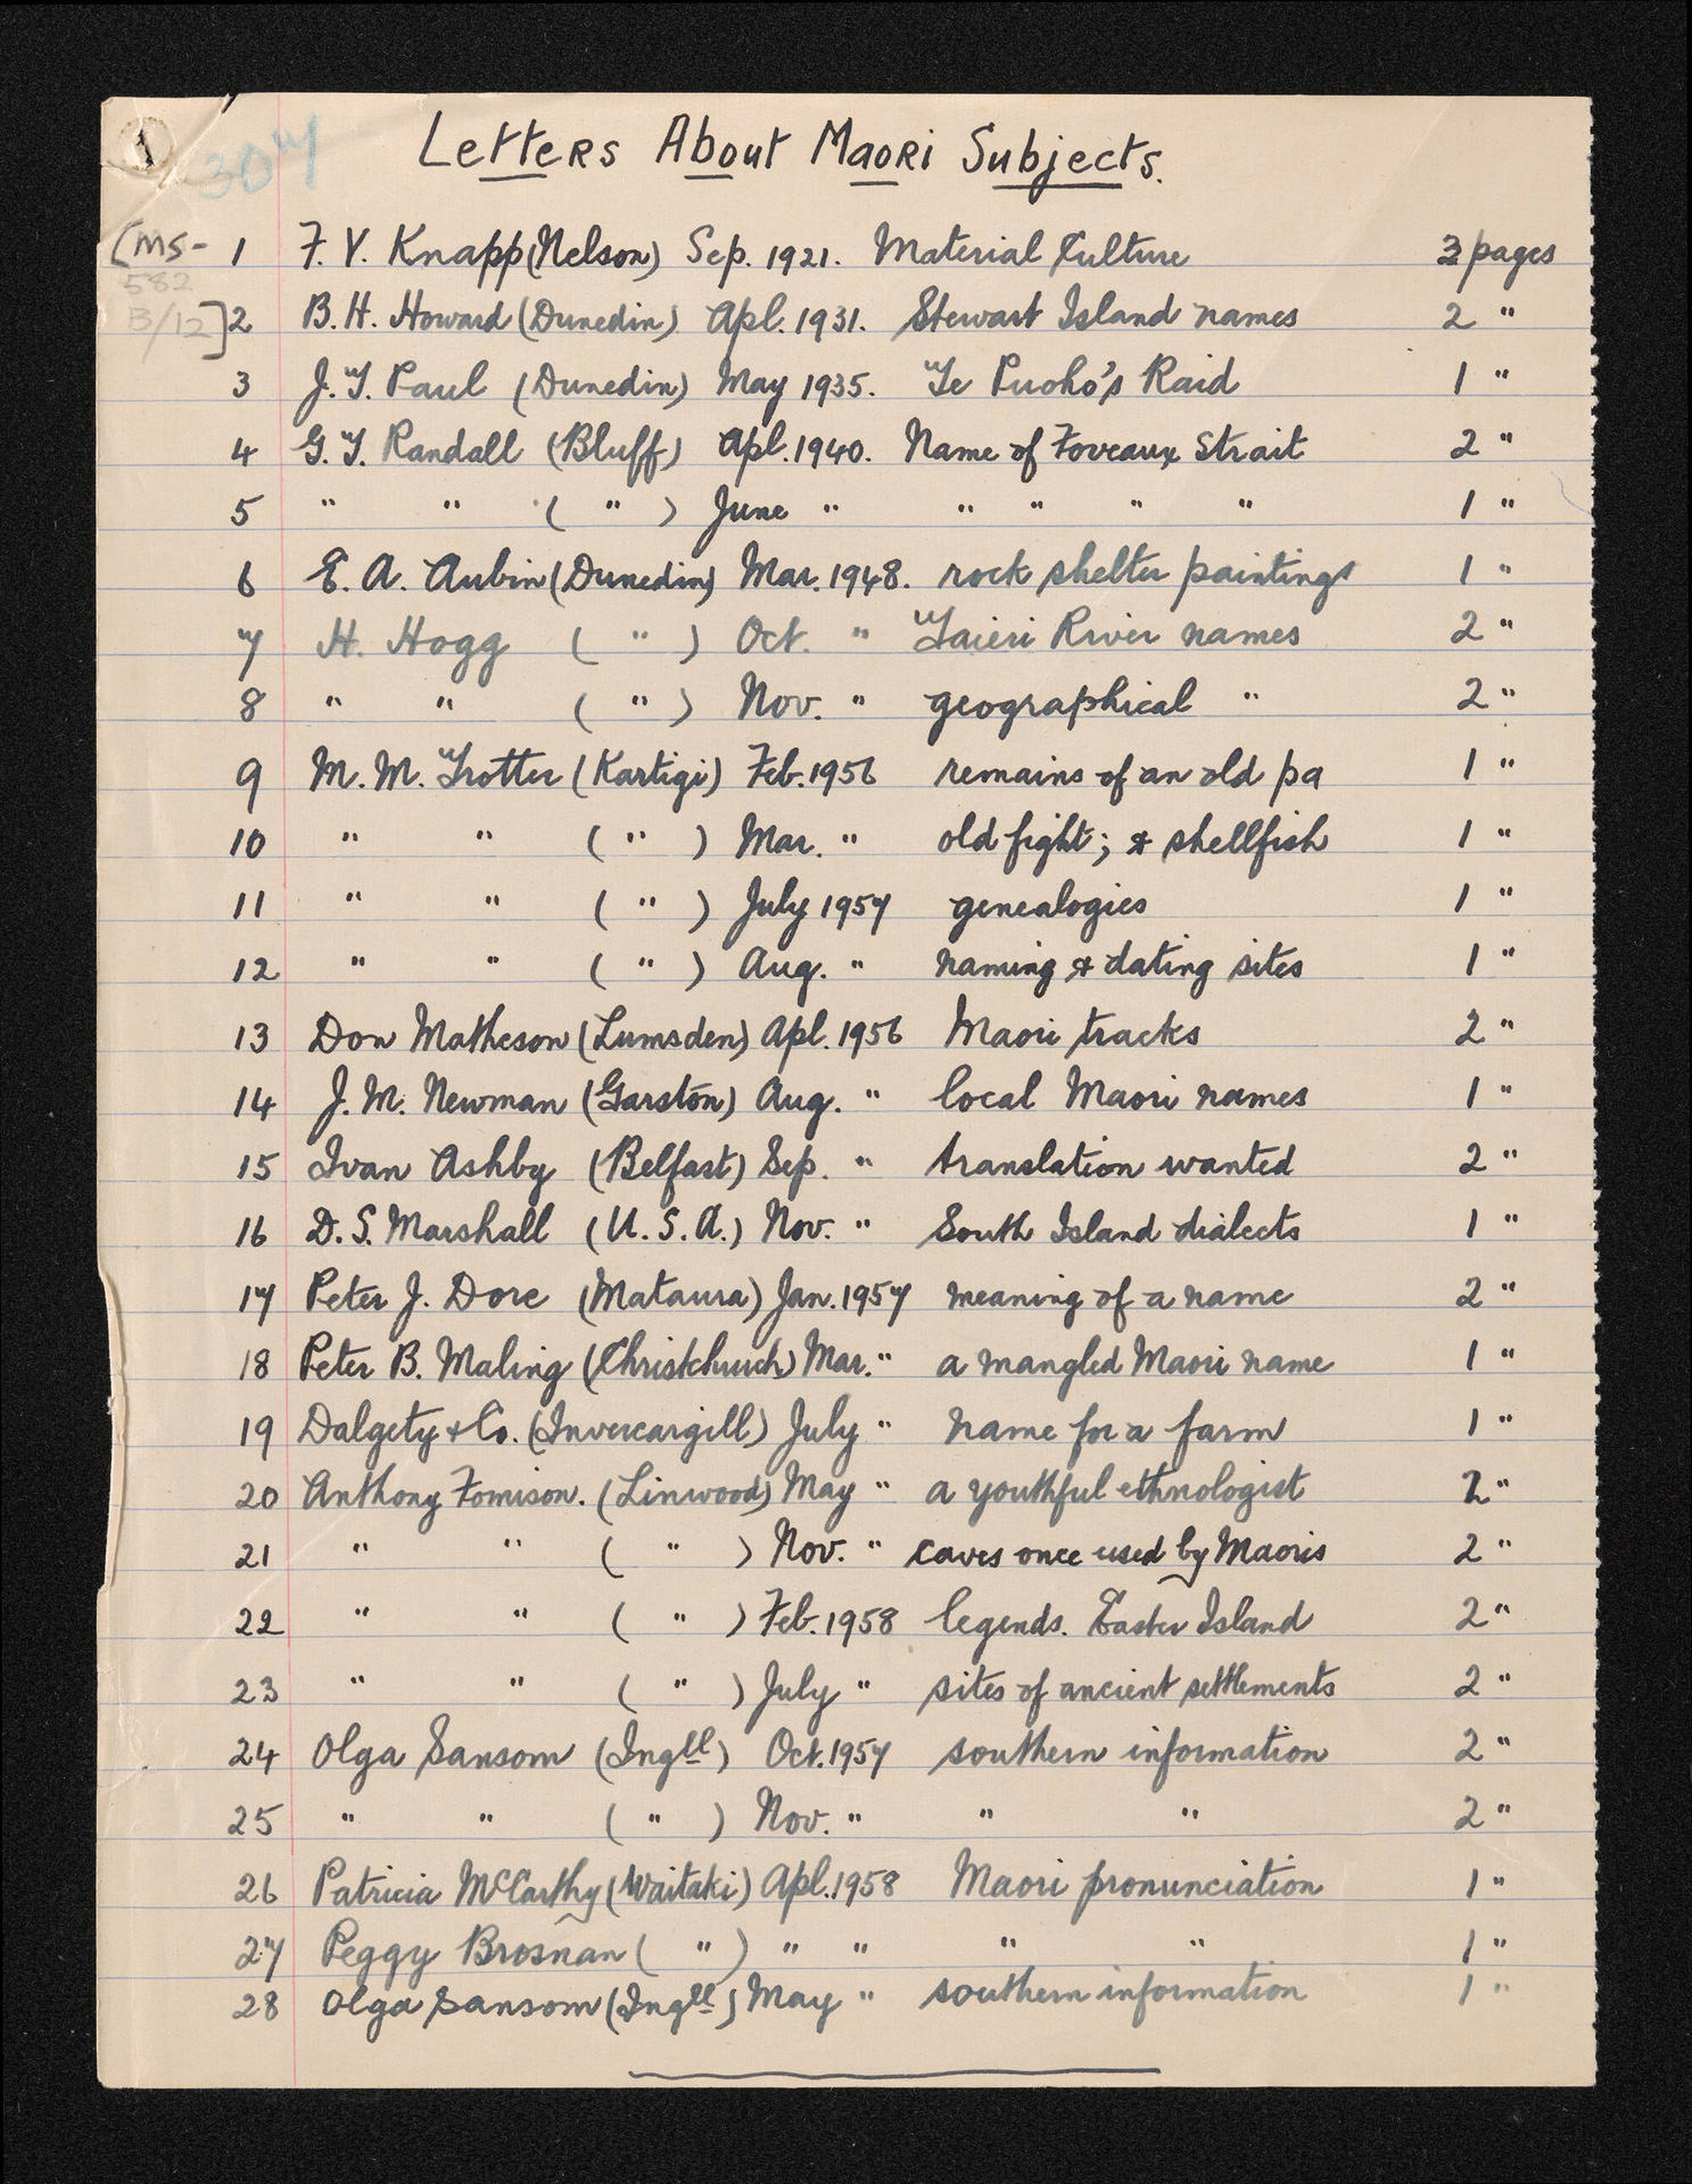 1
304
Letters About Maori Subjects.
[MS-582 B/12]
1 F. V. Knapp (Nelson) Sep. 1921. Material Culture 3 pages
2 B. H. Howard (Dunedin) Apl. 1931. Stewart Island names 2 "
3 J. T. Paul (Dunedin) May 1935. Te Puoho's Raid 1 "
4 G. T. Randall (Bluff) Apl. 1940. Name of Foveaux Strait 2 "
5 " " ( " ) June " " " " " 1 "
6 E. A. Aubin (Dunedin) Mar. 1948. rock shelter paintings 1 "
7 H. Hogg ( " ) Oct. " Taieri River names 2 "
8 " " ( " ) Nov. " geographical " 2 "
9 M. M. Trotter (Kartigi) Feb. 1956 remains of an old pa 1 "
10 " " ( " ) Mar. " old fight; & shellfish 1 "
11 " " ( " ) July 1957 genealogies 1 "
12 " " ( " ) Aug. " naming & dating sites 1 "
13 Don Matheson (Lumsden) Apl. 1956 Maori tracks 2 "
14 J. M. Newman (Garston) Aug. " local Maori names 1 "
15 Ivan Ashby (Belfast) Sep. " translation wanted 2 "
16 D. S. Marshall (U. S. A.) Nov. " South Island dialects 1 "
17 Peter J. Dore (Mataura) Jan. 1957 meaning of a name 2 "
18 Peter B. Maling (Christchurch) Mar. " a mangled Maori name 1 "
19 Dalgety & Co. (Invercargill) July " name for a farm 1 "
20 Anthony Fomison. (Linwood) May " a youthful ethnologist 2 "
21 " " ( " ) Nov. " caves once used by Maoris 2 "
22 " " ( " ) Feb. 1958 legends. Easter Island 2 "
23 " " ( " ) July " sites of ancient settlements 2 "
24 Olga Sansom (Ingll) Oct. 1957 southern information 2 "
25 " " ( " ) Nov. " " " 2 "
26 Patricia McCarthy (Waitaki) Apl. 1958 Maori pronunciation 1 "
27 Peggy Brosnan ( " ) " " " " 1 "
28 Olga Sansom (Ingll) May " southern information 1 "